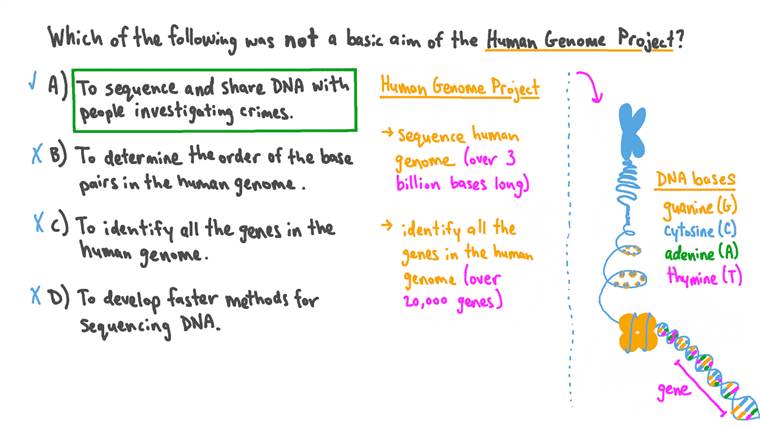 Which of the following was not a basic aim of the Human Genome Project?
✓ A) To sequence and share DNA with
people investigating crimes.
X B) To determine the order of the base
pairs in the human genome.
X C) To identify all the genes in the
human genome.
X D) To develop faster methods for
sequencing DNA.
Human Genome Project
→ sequence human
genome (over 3
billion bases long)
→ identify all the
genes in the human
genome (over
20,000 genes)
DNA bases
guanine (G)
cytosine (C)
adenine (A)
thymine (T)
gene